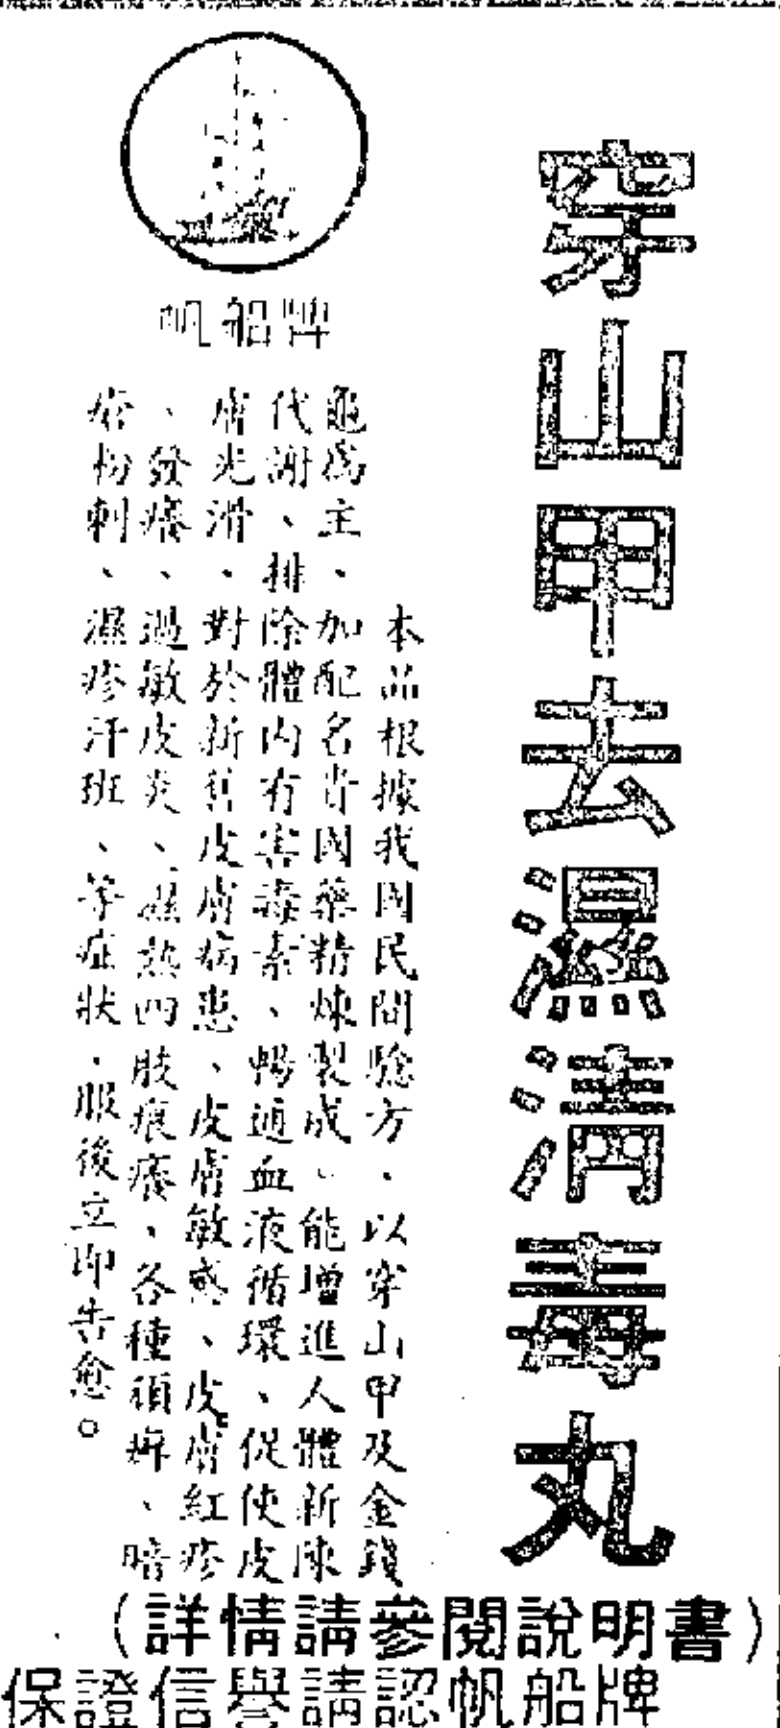 穿山甲去濕清毒丸
帆船牌
本品根據我國民間驗方、以穿山甲及金錢
龜為主、加配名貴國藥精煉製成。能增進人體新陳
代謝、排除體内有害毒素、暢通血液循環、促使皮
膚光滑、對於新舊皮膚病患、皮膚敏感、皮膚紅疹
、發癢、過敏皮炎、濕熱四肢痕癢、各種頑癬、暗
瘡粉刺、濕疹汗班、等症狀.服後立即告愈。
(詳情請參閱說明書)
保證信譽請認帆船牌